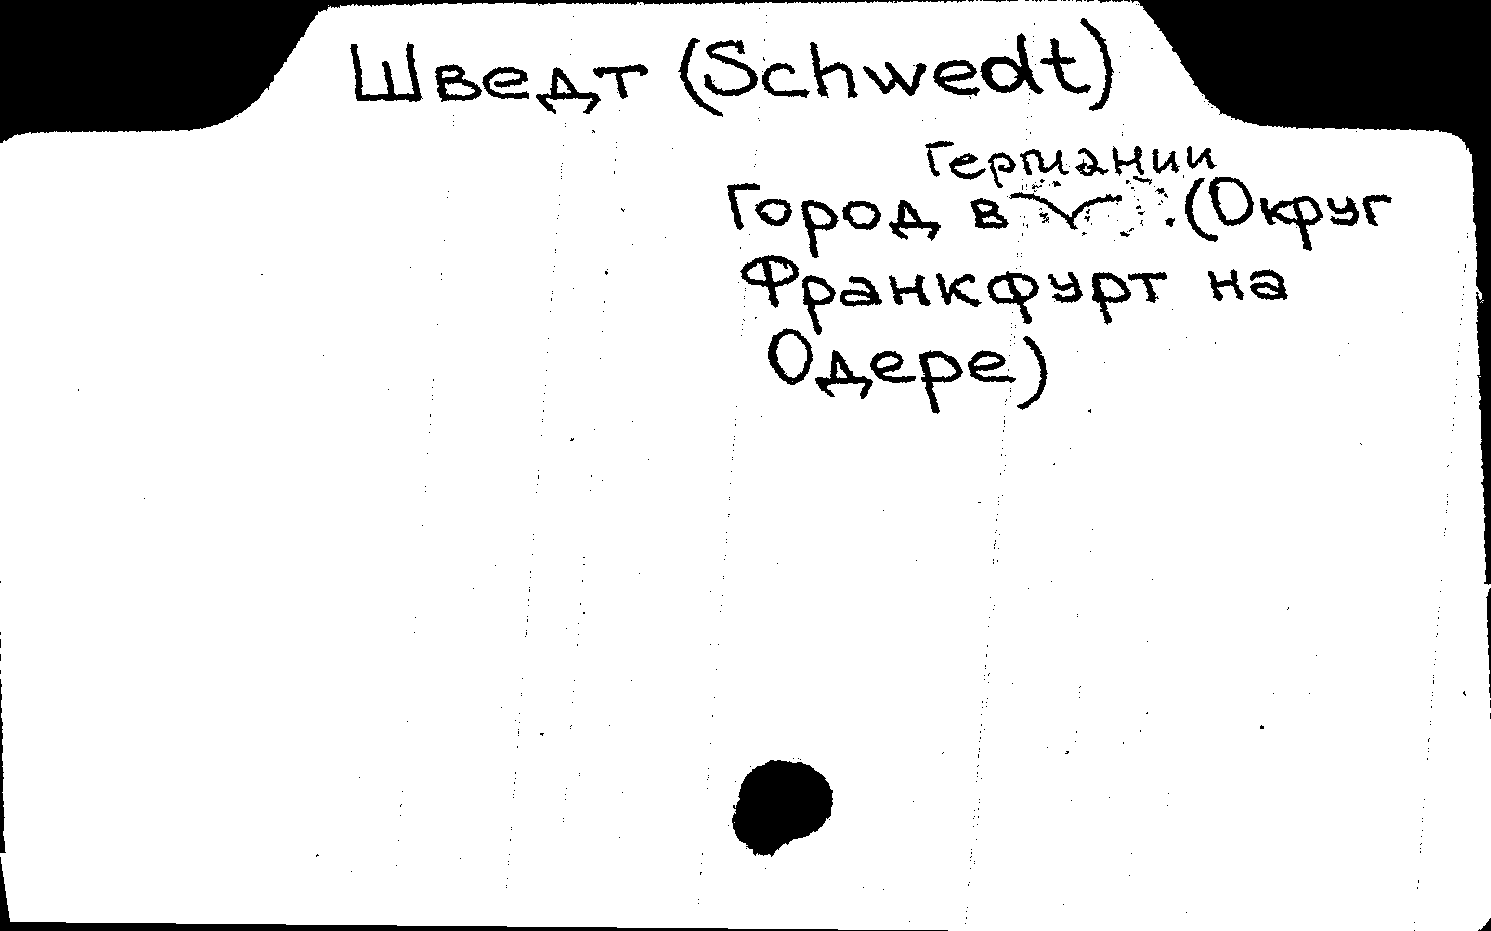 Шведт (Schwedt)
Германии
Город в . (Округ
Франкфурт на
Одере)